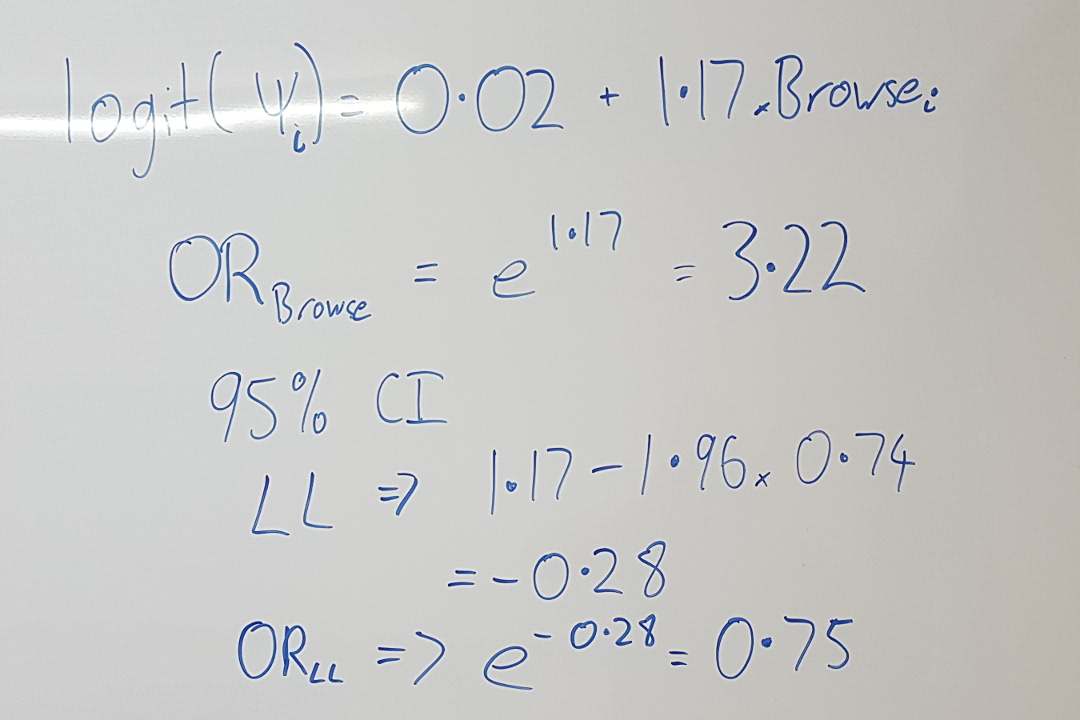 logit(ψᵢ) = 0·02 + 1·17×Browseᵢ
OR_Browse = e^1·17 = 3·22
95% CI
LL => 1·17 - 1·96 × 0·74
= -0·28
OR_LL => e^-0·28 = 0·75